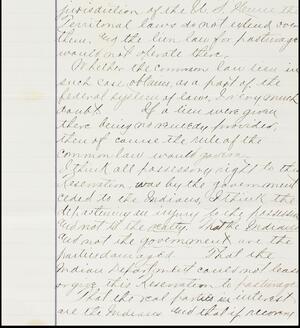 jurisdiction of the U. S. Hence the
Territorial laws do not extend over
them, and the lien law for pasturage
would not operate there.
Whether the common law lien in
such case obtains, as a part of the
federal system of laws, I very much
doubt. If a lien were given
there being no remedy provided,
then of course the rule of the
common law would govern.
I think all possessory right to this
Reservation, was by the government
ceded to the Indians, I think the
is injury to the possession
and not to the realty. That the Indians
and not the government are the
parties damaged. That the
Indian Department could not lease
or give this Reservation to pasturage
That the real parties in interest
are the Indians and that if recovery